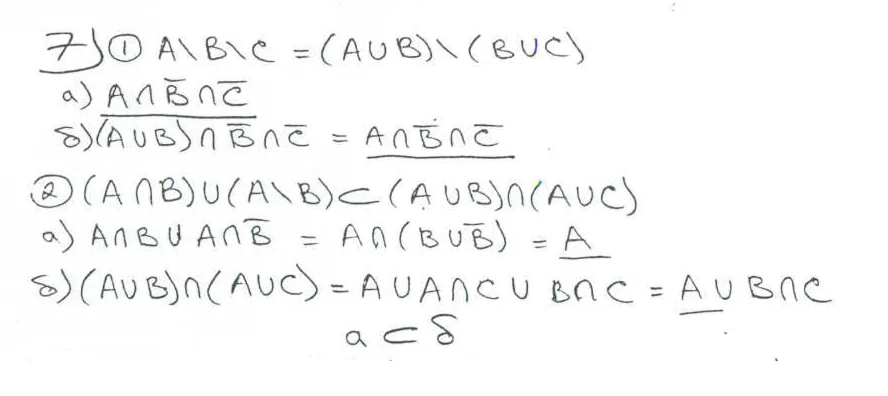 7) ① A\B\C = (A∪B)\(B∪C)
а) A∩B̅∩C̅
б) (A∪B)∩B̅∩C̅ = A∩B̅∩C̅
② (A∩B)∪(A\B)⊂(A∪B)∩(A∪C)
а) A∩B∪A∩B̅ = A∩(B∪B̅) = A
б) (A∪B)∩(A∪C) = A∪A∩C∪B∩C = A∪B∩C
а ⊂ б